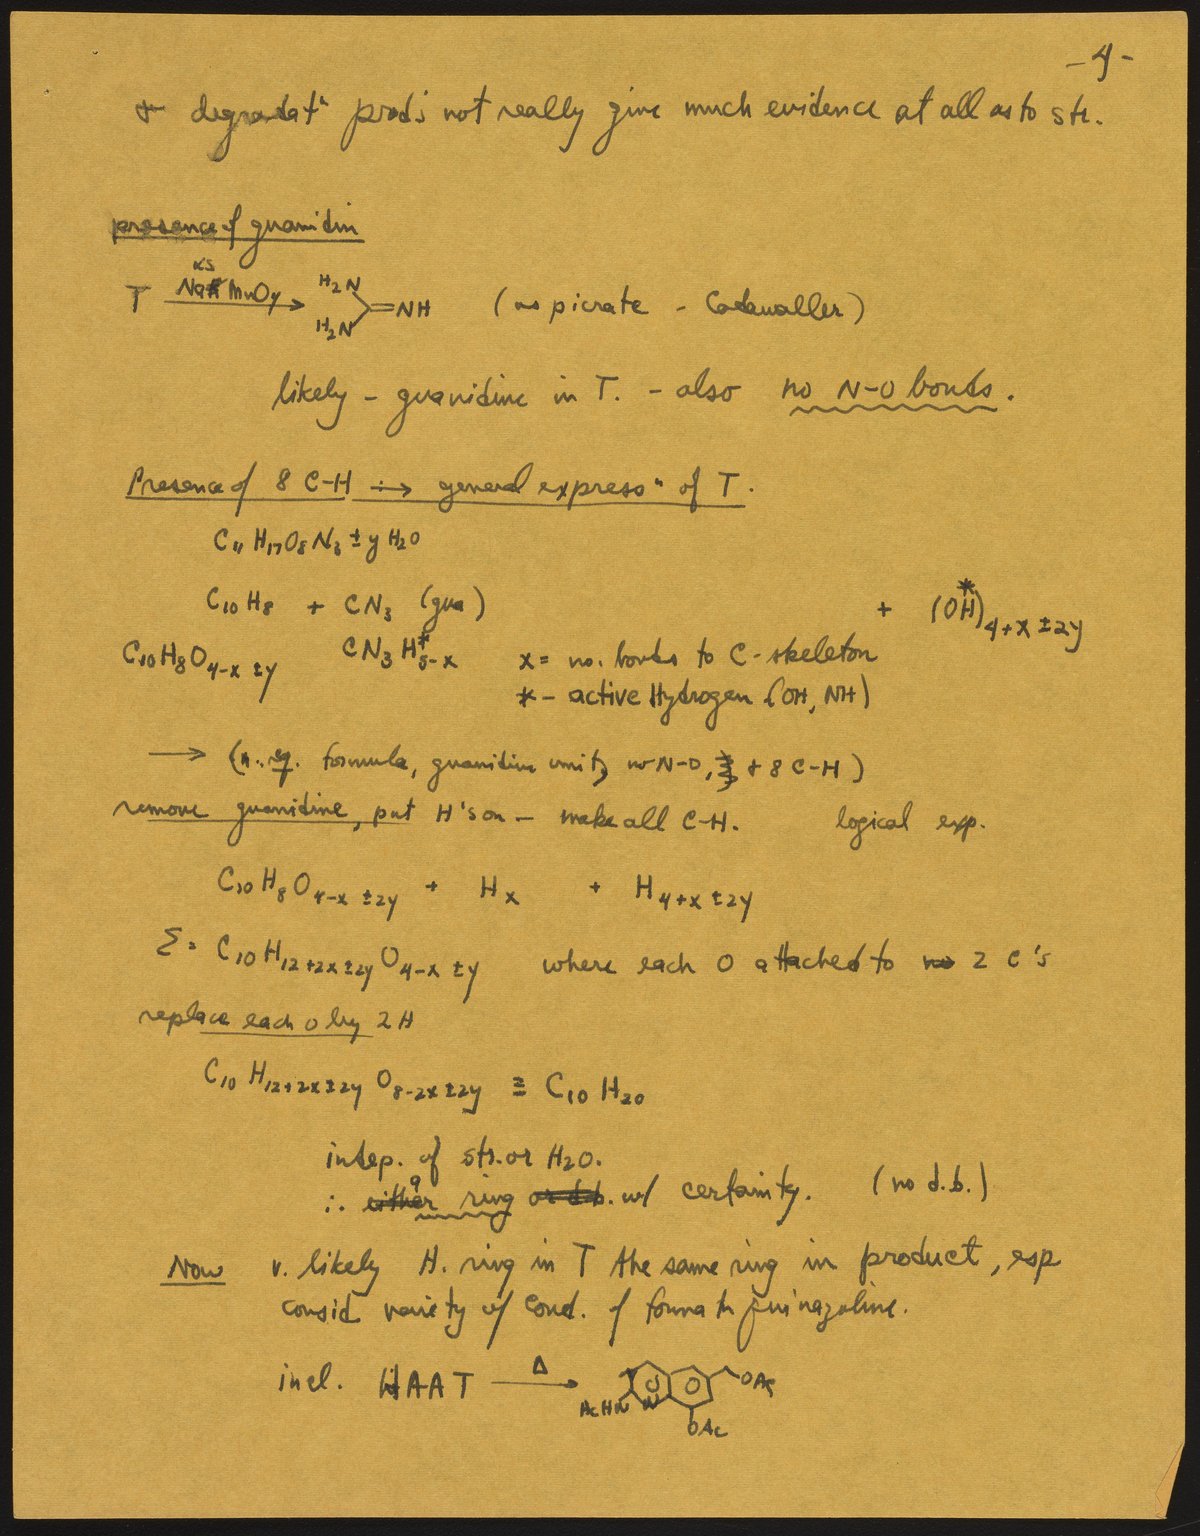 -4-
& degradatⁿ prods not really give much evidence at all as to str.
presence of guanidin
T xs Na MnO4 → H2N H2N =NH (as picrate - Cadwaller)
likely - guanidine in T. - also no N-O bonds.
Presence of 8 C-H ⟶ general expressⁿ of T.
C11 H17 O8 N3 ± y H2O
C10 H8 + CN3 (gua) + (OH*)4+x±2y
C10H8O4-x±y CN3 H*5-x x = no. bonds to C-skeleton
* - active Hydrogen (OH, NH)
→ ( formula, guanidine unit, no N-O, + 8 C-H)
remove guanidine, put H's on - make all C-H. logical exp.
C10 H8 O4-x±2y + Hx + H4+x±2y
Σ = C10 H12+2x±2y O4-x±y where each O attached to no 2 C's
replace each O by 2 H
C10 H12+2x±2y O8-2x±2y ≡ C10 H20
indep. of str. or H2O.
∴ either a ring or d.b. w/ certainty. (no d.b.)
Now v. likely H. ring in T the same ring in product, esp
consid variety of cond. of formatn quinazoline.
incl. HAAT Δ → AcHN N OAc OAc